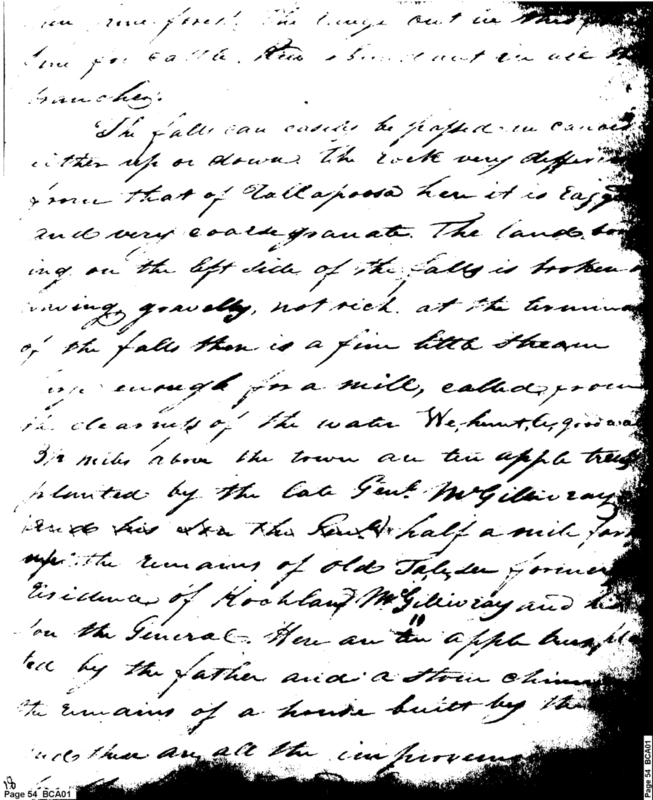 pine forest. The range out in this
fine for cattle. Reed abundant in all the
branches.
The falls can easily be passed in canoes
either up or down. The rock very different
from that of Tallapoosa here it is ragged
and very coarse granate. The land bor
ing on the left side of the falls is broken or
waving, gravelly, not rich. at the termina
of the falls there is a fine little stream
large enough for a mill, called, from
the clearness of the water We,hemt,le,
3½ miles above the town are ten apple trees
planted by the late Genl. McGillivray,
half a mile further
up the remains of old Tal,e,see formerly
residence of McGillivray and his
son the General. Here are ten apple trees, plan
ted by the father and a stone chimney
the remains of a house built by the
and these are all the improvemen
18
Page 54 BCA01
Page 54 BCA01